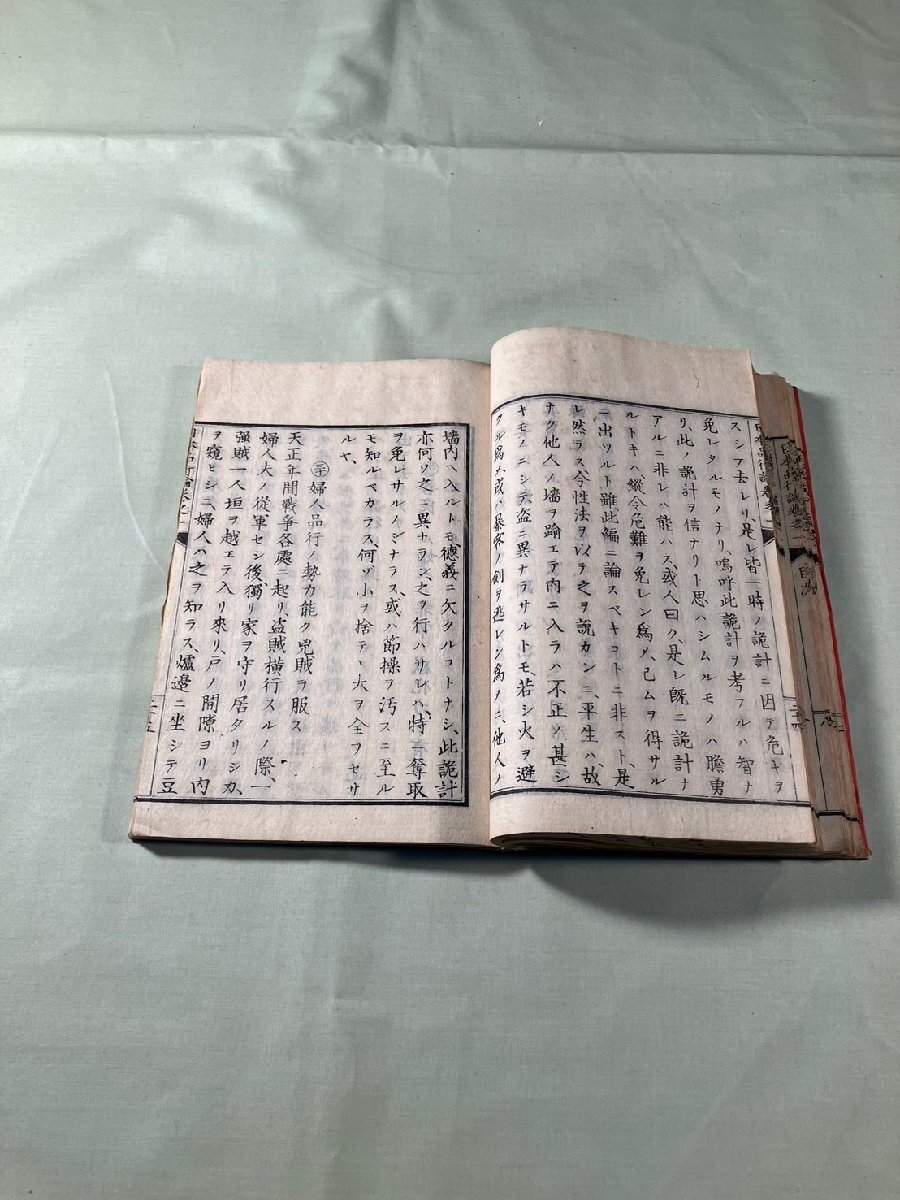 スシテ去レリ、是レ皆一時ノ詭計ニ因テ危キヲ
免レタルモノナリ、嗚呼此詭計ヲ考フルハ智ナ
リ、此ノ詭計ヲ信ナリト思ハシムルモノハ膽勇
アルニ非レハ能ハス、或人曰ク、是レ既ニ詭計ナ
ルトキハ、縱令危難ヲ免レン爲メ、已ムヲ得サル
ニ出ツルト雖、此編ニ論スベキコトニ非スト、是
レ然ラス今性法ヲ以テ之ヲ說カンニ、平生ハ故
ナク他人ノ墻ヲ踰エテ內ニ入ラハ、不正ノ甚シ
キモノニシテ盜ニ異ナラサルトモ若シ火ヲ避
クル爲メ、或ハ暴客ノ劍ヲ逃レン爲メニ、他人ノ
墻內ヘ入ルトモ、德義ニ欠クルコトナシ、此詭計
亦何ソ之ニ異ナラン、之ヲ行ハサレハ、特ニ奪取
ヲ免レサルノミナラス、或ハ節操ヲ汚スニ至ル
モ知ルベカラス、何ソ小ヲ捨テヽ大ヲ全フセサ
ルヤ、
婦人品行ノ勢力能ク兇賊ヲ服ス
天正年間戰爭各處ニ起リ盜賊橫行スルノ際、一
婦人夫ノ從軍セシ後、獨リ家ヲ守リ居タリシカ、
强賊一人垣ヲ越エテ入リ來リ、戸ノ間隙ヨリ內
ヲ窺ヒシニ、婦人ハ之ヲ知ラス、爐邊ニ坐シテ豆